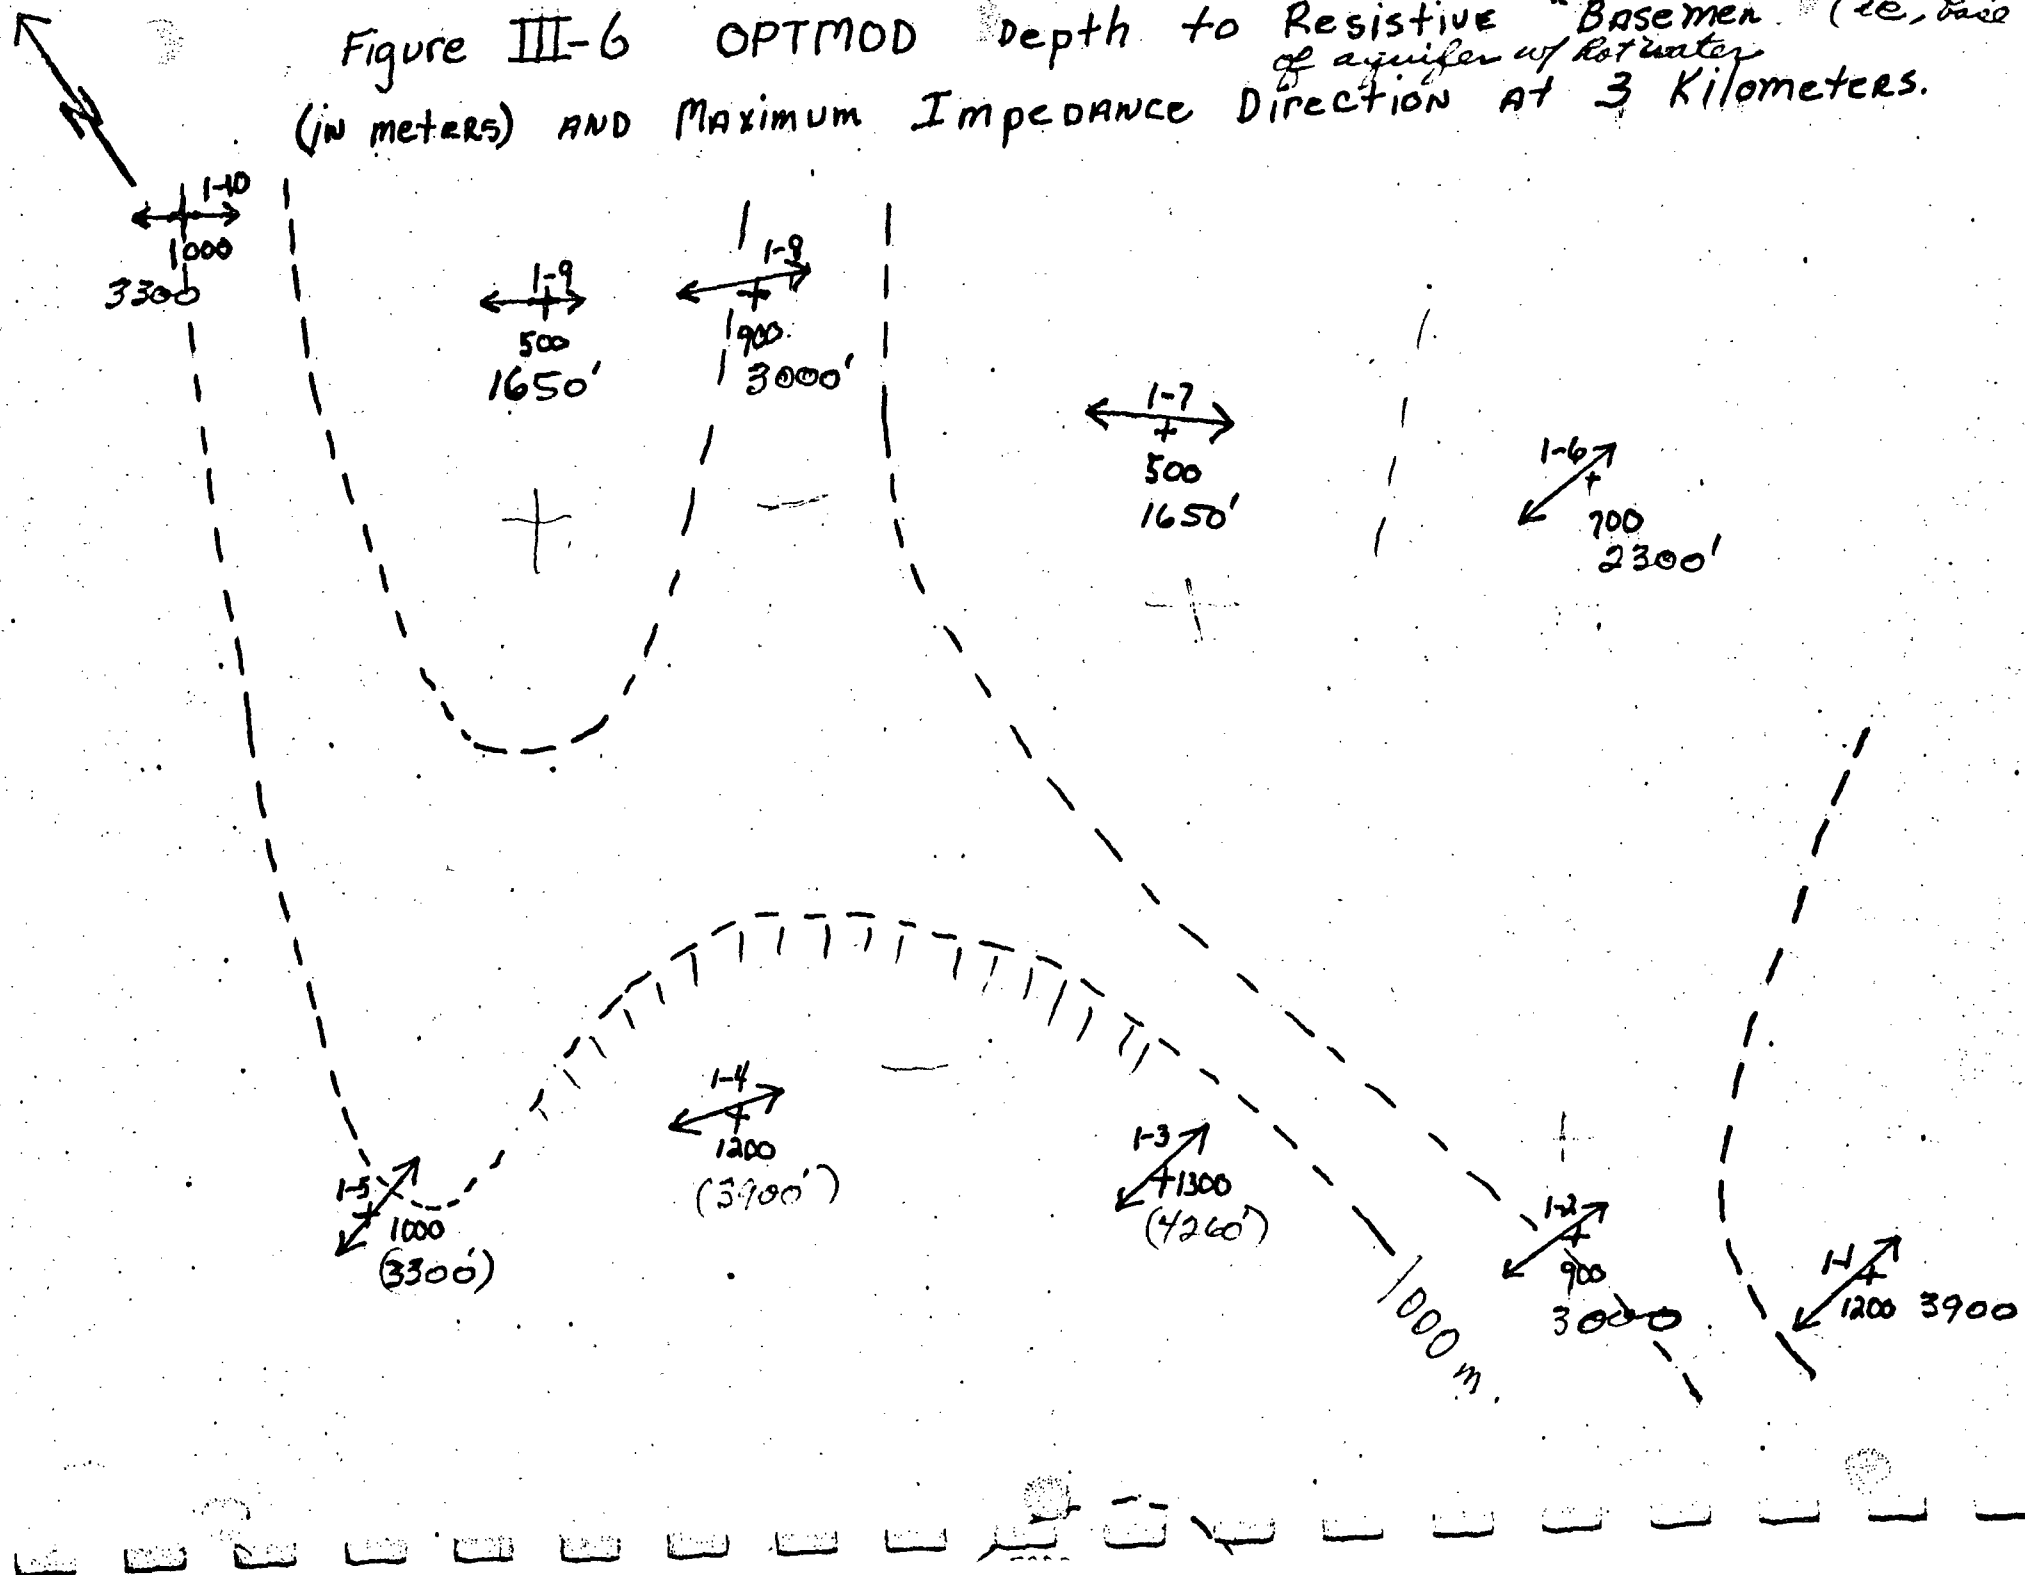 Figure III-6 OPTMOD Depth to Resistive "Basemen (ie, base
of aquifer w/ hot water
(in meters) AND Maximum Impedance Direction At 3 Kilometers.
N
1-10
1000
3300
1-9
500
1650'
1-8
900
3000'
1-7
500
1650'
1-6
700
2300'
1-5
1000
(3300')
1-4
1200
(3900')
1-3
1300
(4260')
1-2
900
3000
1-1
1200 3900
1000 m.